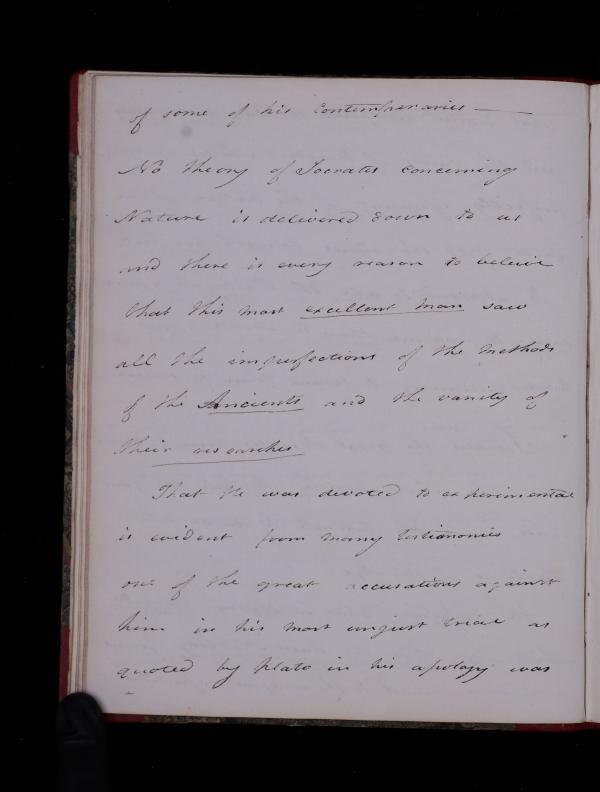 of some of his Contemporaries —
No theory of Socrates concerning
Nature is delivered down to us
and there is every reason to believe
that this most excellent man saw
all the imperfections of the methods
of the Ancients and the vanity of
their researches
That he was devoted to experimental
is evident from many testimonies
one of the great accusations against
him in his most unjust trial as
quoted by Plato in his apology was